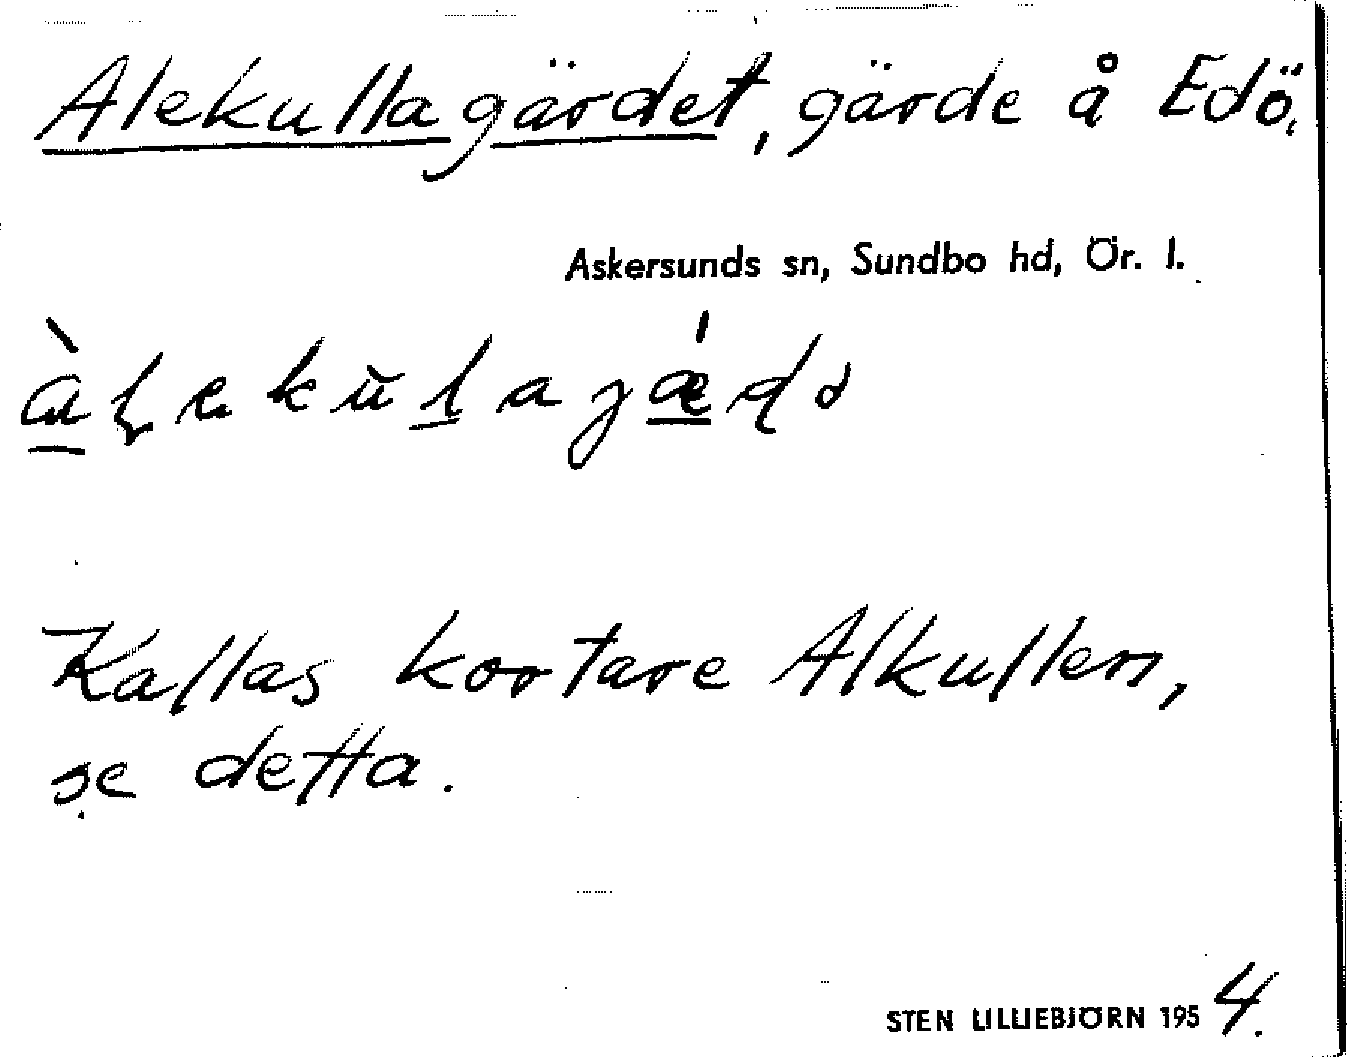 Alekullagärdet, gärde å Edö.
Askersunds sn, Sundbo hd, Ör. l.
Kallas kortare Alkullen,
se detta.
STEN LILLIEBJÖRN 1954.